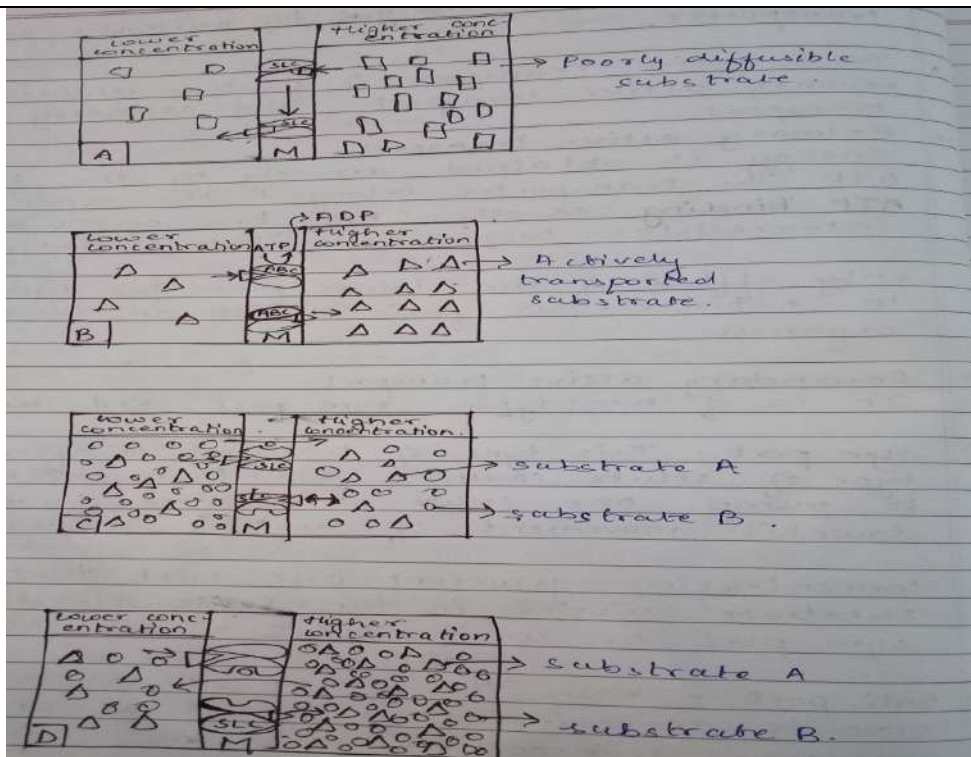 Lower
concentration
Higher conc-
entration
SLC
SLC
→ Poorly diffusible
substrate.
A
M
→ ADP
Lower
concentration
ATP
Higher
concentration
ABC
ABC
→ Actively
transported
substrate.
B
M
Lower
concentration
Higher
concentration.
SLC
SLC
→ substrate A
→ substrate B.
C
M
Lower conc-
entration
Higher
concentration
→ substrate A
SLC
→ substrate B.
D
M